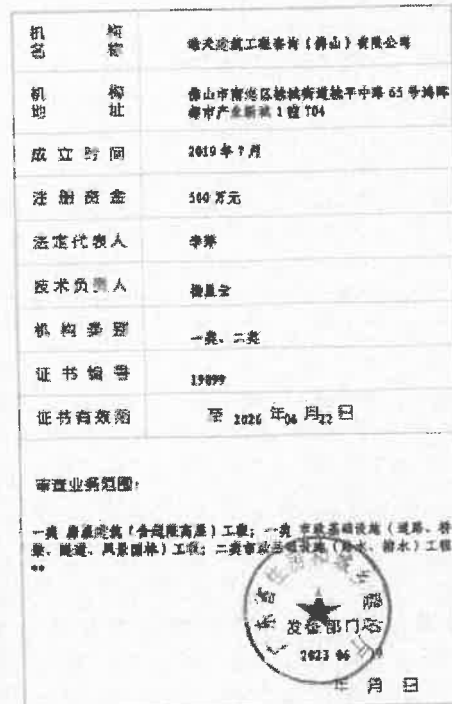 机构名称 天建筑工程咨询（佛山）有限公司
机构地址 佛山市南海区桂城街道桂平中路 65 号鸿晖
都市产业新城 1 幢 704
成立时间 2019 年 7 月
注册资金 500 万元
法定代表人 李
技术负责人
机构类别 一类、二类
证书编号 19099
证书有效期 至 2026 年 06 月 22 日
审查业务范围：
一类 房屋建筑（含超限高层）工程；一类 市政基础设施（道路、桥
梁、隧道、风景园林）工程；二类市政基础设施（给水、排水）工程
**
广东省住房和城乡建设厅
发证部门
2023 06
年 月 日